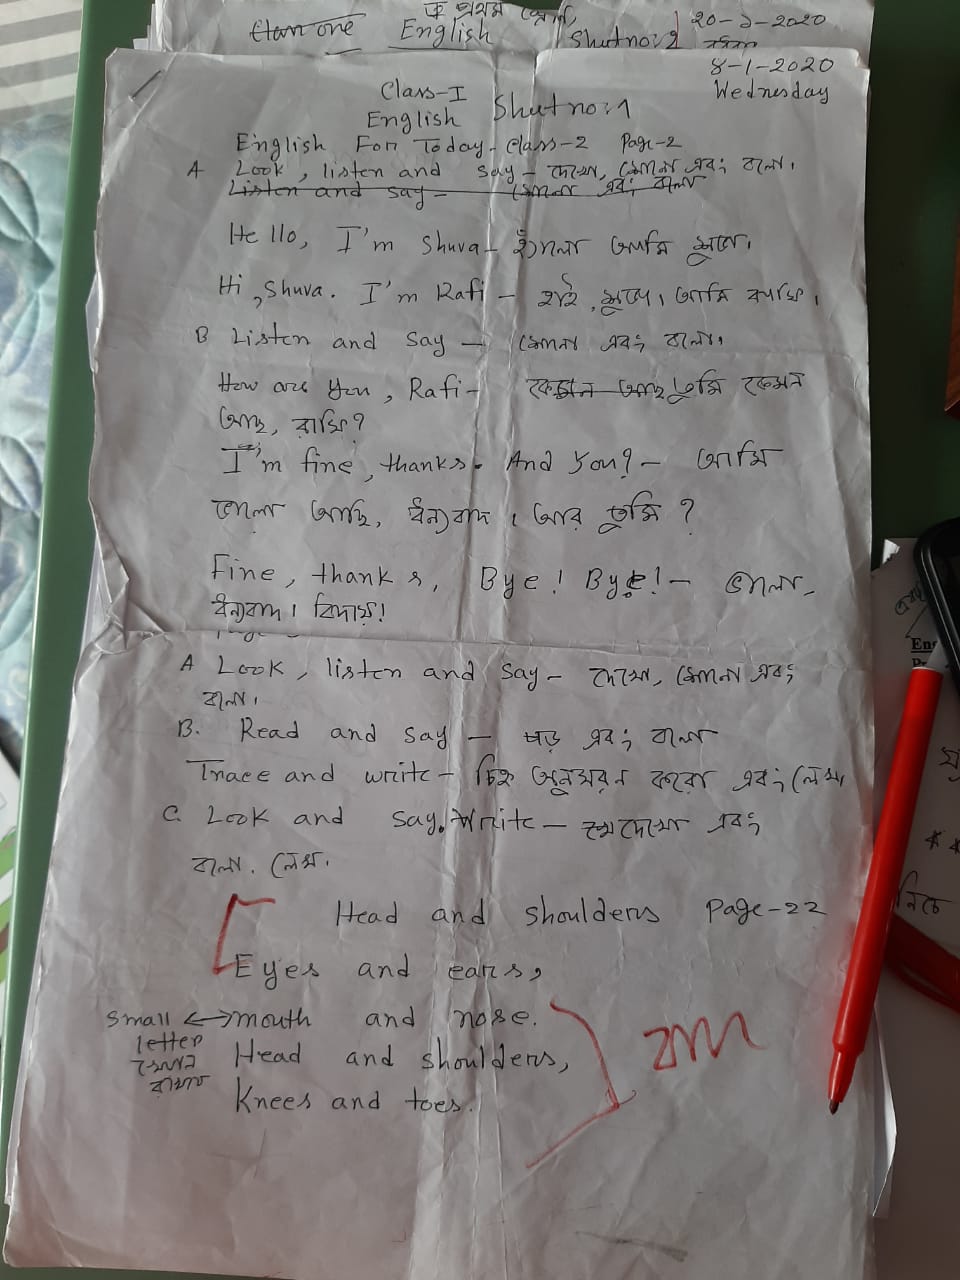 ক প্রথম শ্রেণি,
Class one English Shutno:2 20-১-2020
8-1-2020
Class-I Wednesday
English Shutno:1
English For Today-Class-2 Page-2
A Look, listen and say - দেখো, শোনো এবং বলো।
Listen and say - শোনো এবং বলো
Hello, I'm Shuva - হ্যালো আমি শুভ।
Hi, Shuva. I'm Rafi - হাই, শুভ। আমি রাফি।
B Listen and say - শোনো এবং বলো।
How are you, Rafi - কেমন আছ তুমি কেমন
আছ, রাফি?
I'm fine, thanks. And you? - আমি
ভালো আছি, ধন্যবাদ। আর তুমি?
Fine, thanks, Bye! Bye! - ভালো,
ধন্যবাদ। বিদায়!
A Look, listen and say - দেখো, শোনো এবং
বলো।
B. Read and say - পড় এবং বলো
Trace and write - চিহ্ন অনুসরন করো এবং লেখ
C. Look and say. Write - দেখো এবং
বলো. লেখ.
Head and shoulders Page-22
Eyes and ears,
small ↔ mouth and nose.
letter Head and shoulders,
Knees and toes.
Eng
নিচে